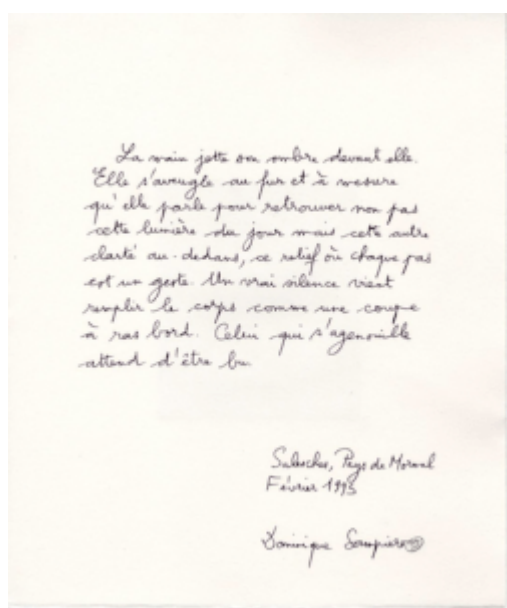 La main jette son ombre devant elle.
Elle s'aveugle au fur et à mesure
qu'elle parle pour retrouver non pas
cette lumière du jour mais cette autre
clarté au-dedans, ce relief où chaque pas
est un geste. Un vrai silence vient
remplir le corps comme une coupe
à ras bord. Celui qui s'agenouille
attend d'être bu.
Salesches, Pays de Mormal
Février 1995
Dominique Sampiero